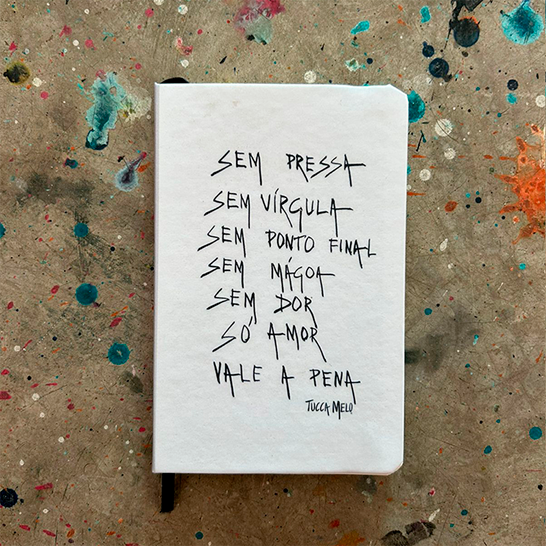 SEM PRESSA
SEM VÍRGULA
SEM PONTO FINAL
SEM MÁGOA
SEM DOR
SÓ AMOR
VALE A PENA
TUCCA MELO